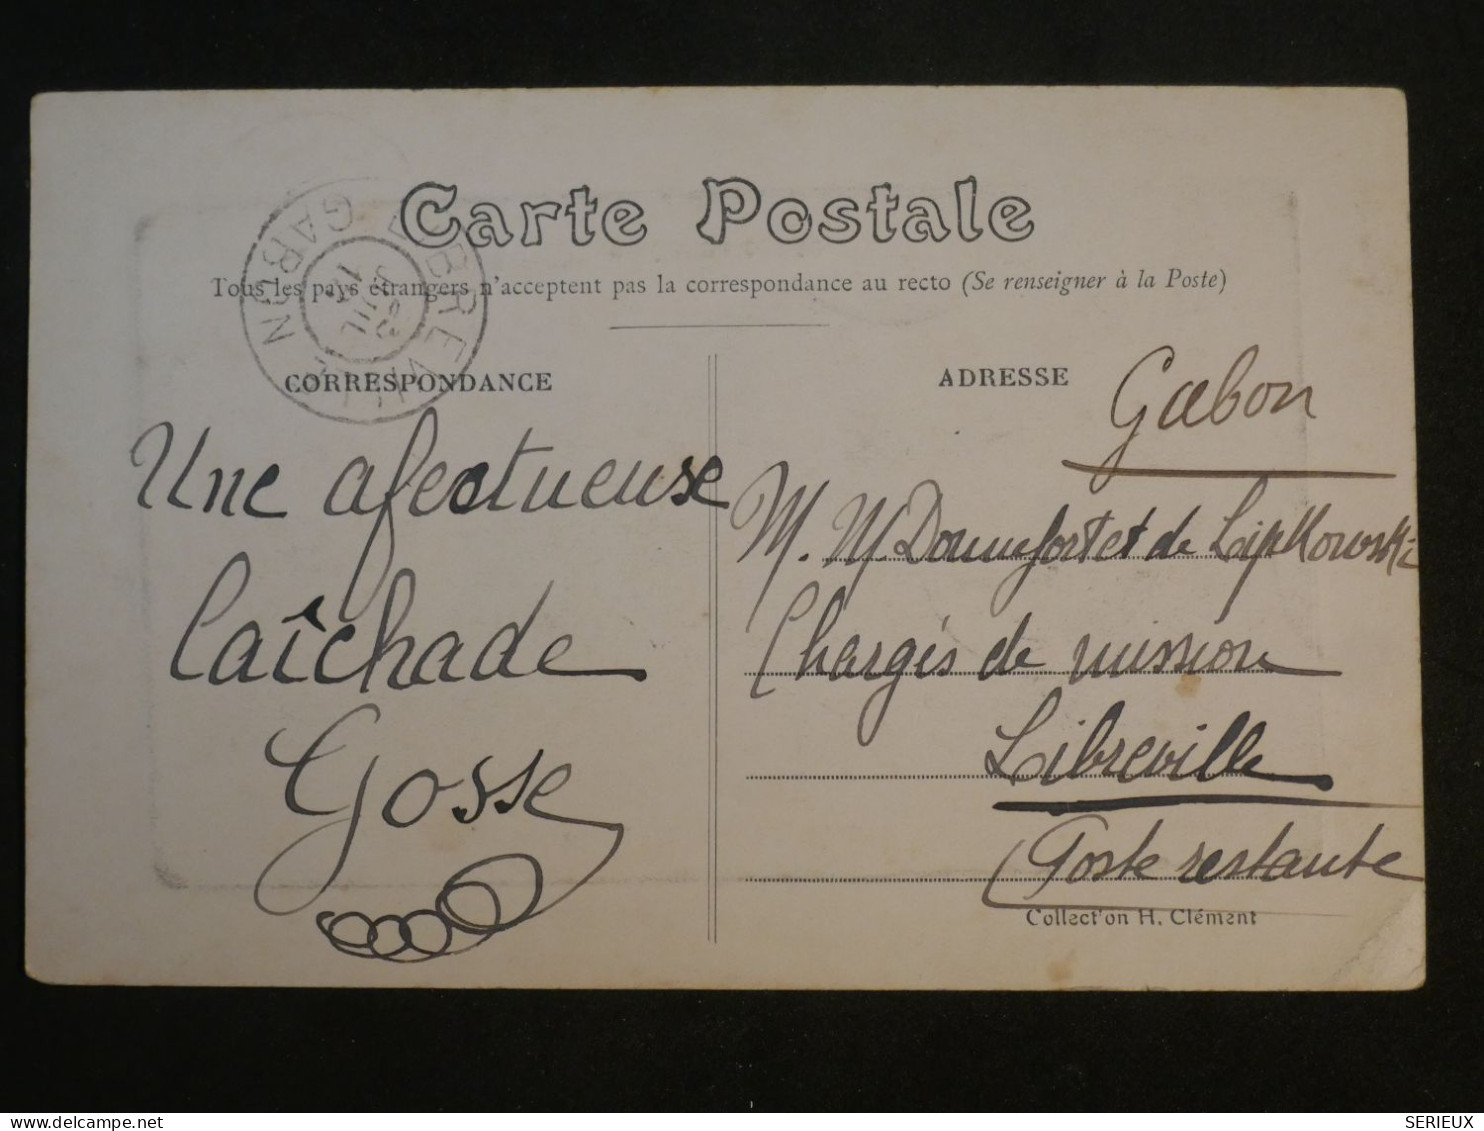 Carte Postale
Tous les pays étrangers n'acceptent pas la correspondance au recto (Se renseigner à la Poste)
LIBREVILLE
GABON
JUIL
CORRESPONDANCE
ADRESSE
Gabon
Une afectueuse
laîchade
Gosse
M. M Donnefort et de Lipkowski
Chargés de mission
Libreville
Poste restante
Collect'on H. Clément
SERIEUX